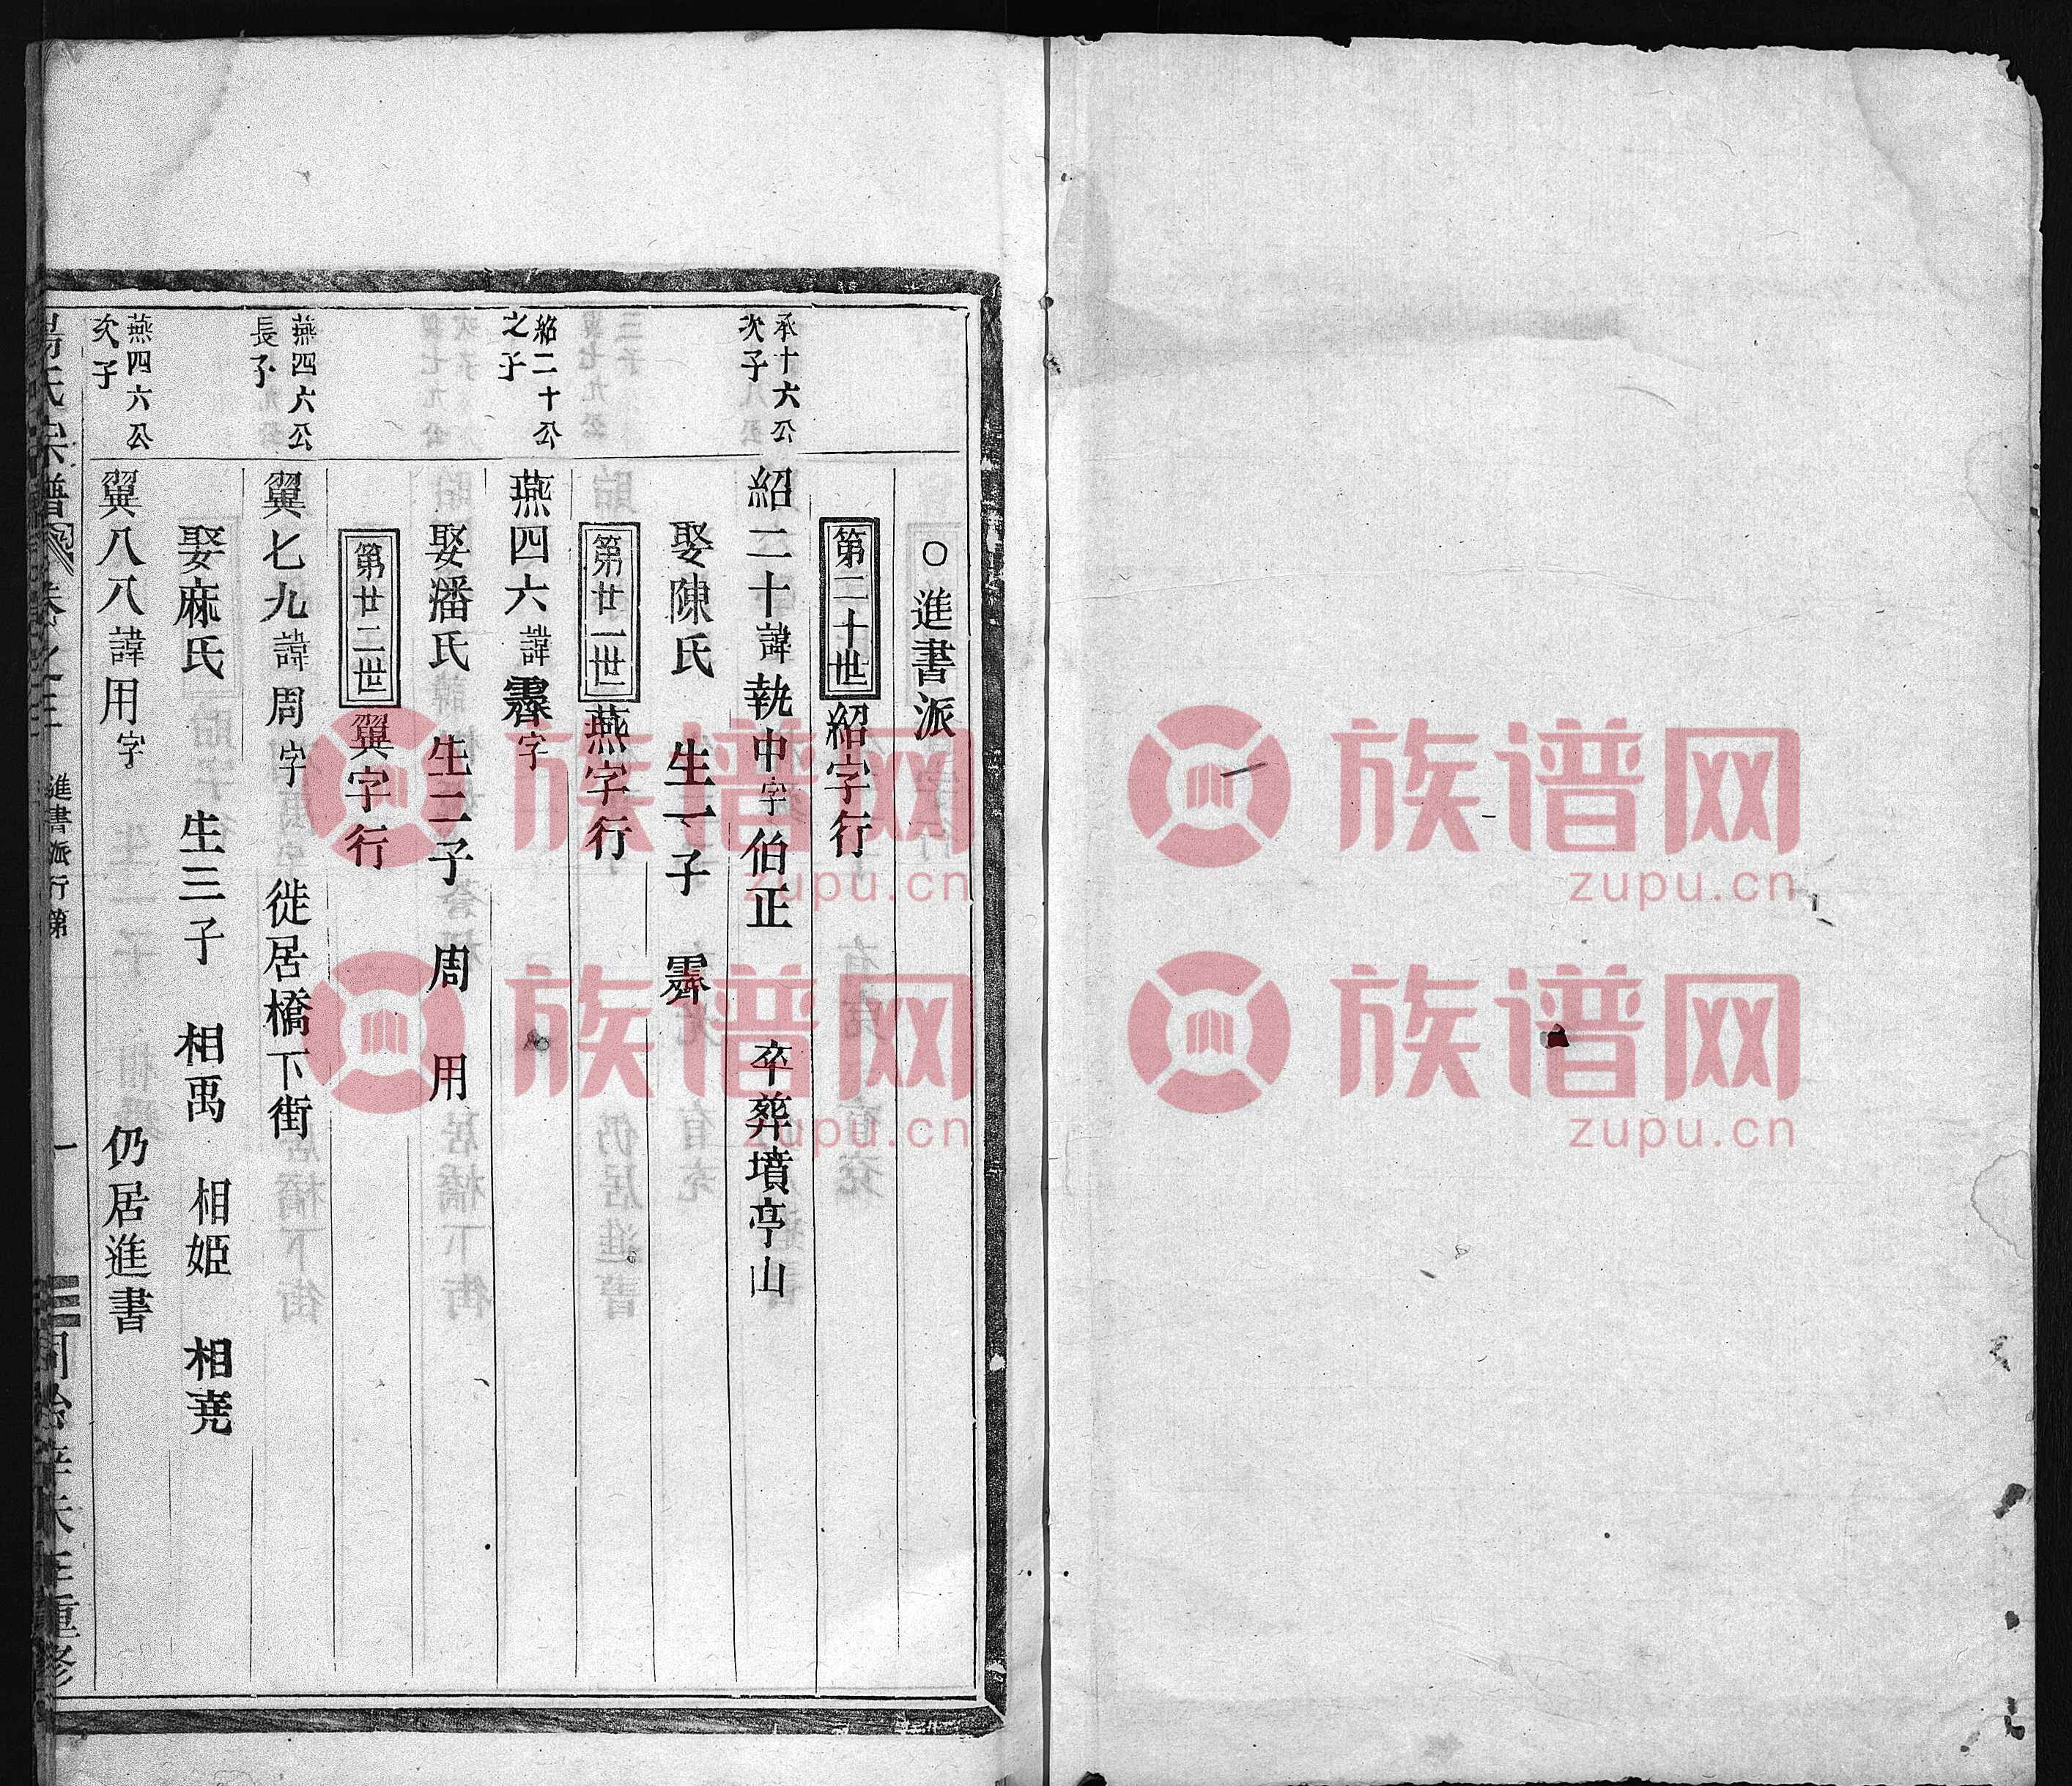 ○進書派
第二十世 紹字行
承十六公
次子
紹二十 諱執中 字伯正 卒葬墳亭山
娶陳氏 生一子 霽
第廿一世 燕字行
紹二十公
之子
燕四六 諱霽 字
娶潘氏 生二子 周 用
第廿二世 翼字行
燕四六公
長子
翼七九 諱周 字 徙居橋下街
娶麻氏 生三子 相禹 相姬 相堯
燕四六公
次子
翼八八 諱用 字 仍居進書
氏宗譜 卷之三 進書派行第 一 同治辛未年重修
族谱网
zupu.cn
族谱网
zupu.cn
族谱网
zupu.cn
族谱网
zupu.cn